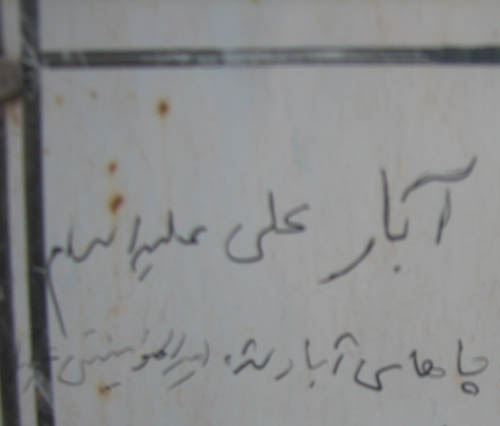 آبار علی علیه السلام
چاهای آبار امیرالمؤمنین